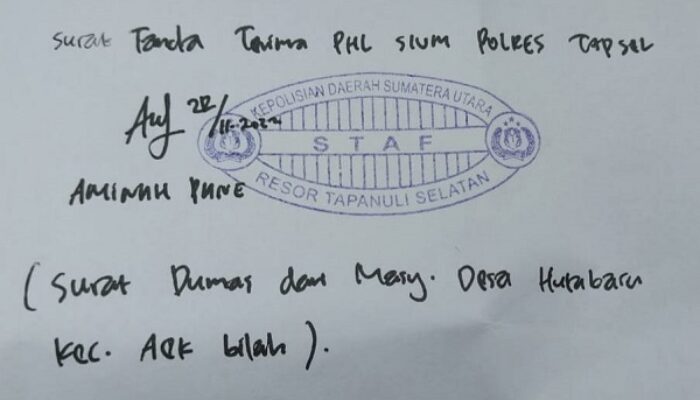 Surat Tanda Terima PHL SIUM POLRES TAPSEL
KEPOLISIAN DAERAH SUMATERA UTARA
STAF
RESOR TAPANULI SELATAN
22/11-2024
AMINAH PANE
(Surat Dumas dari Masy. Desa Hutabaru
Kec. AEK bilah).